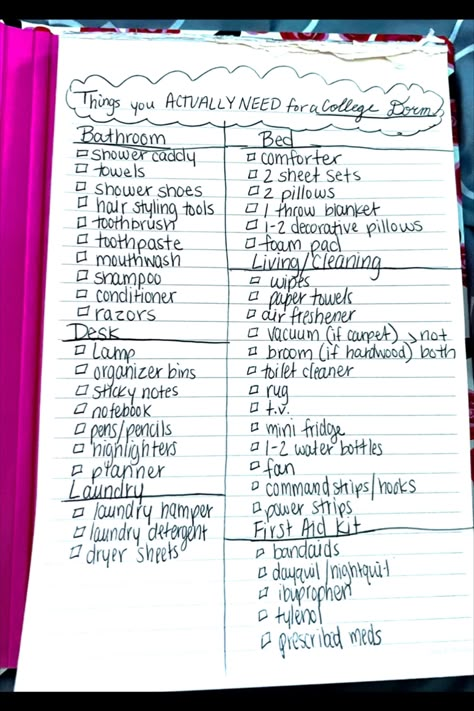 Things you ACTUALLY NEED for a College Dorm
Bathroom
shower caddy
towels
shower shoes
hair styling tools
toothbrush
toothpaste
mouthwash
shampoo
conditioner
razors
Desk
Lamp
organizer bins
sticky notes
notebook
pens/pencils
highlighters
planner
Laundry
laundry hamper
laundry detergent
dryer sheets
Bed
comforter
2 sheet sets
2 pillows
1 throw blanket
1-2 decorative pillows
foam pad
Living/Cleaning
wipes
paper towels
air freshener
vacuum (if carpet) > not
broom (if hardwood) both
toilet cleaner
rug
t.v.
mini fridge
1-2 water bottles
fan
command strips/hooks
power strips
First Aid Kit
bandaids
dayquil/nightquil
ibuprophen
tylenol
prescribed meds